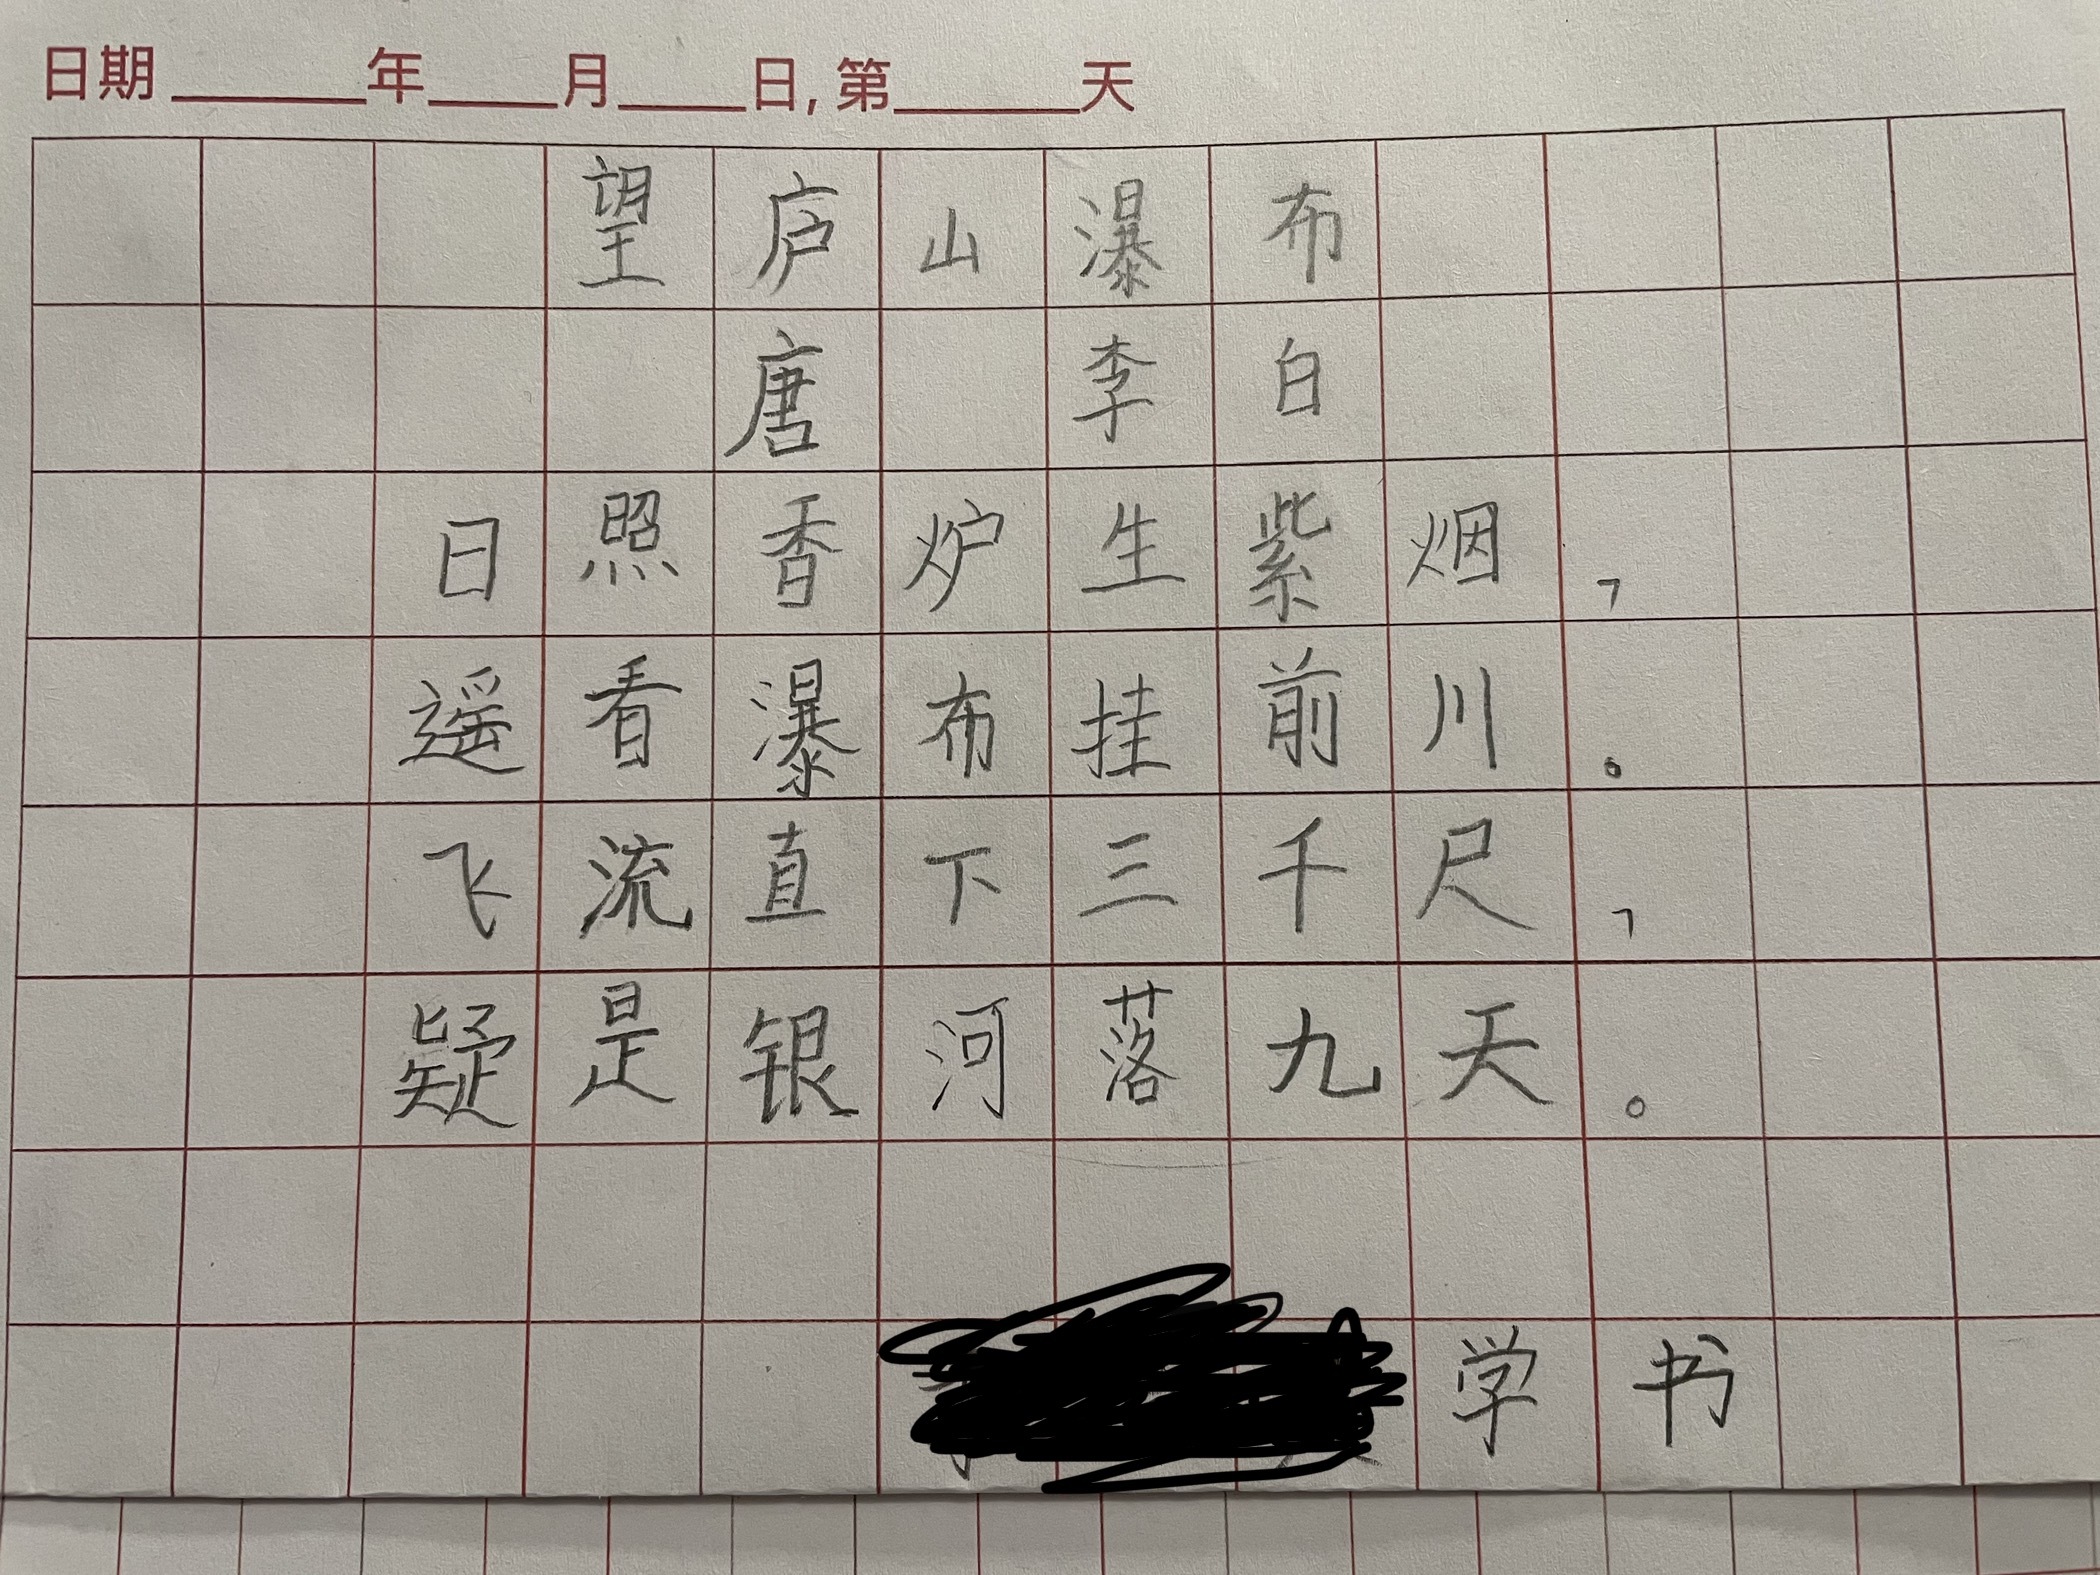 日期______年____月____日,第______天
望庐山瀑布
唐 李白
日照香炉生紫烟，
遥看瀑布挂前川。
飞流直下三千尺，
疑是银河落九天。
学书